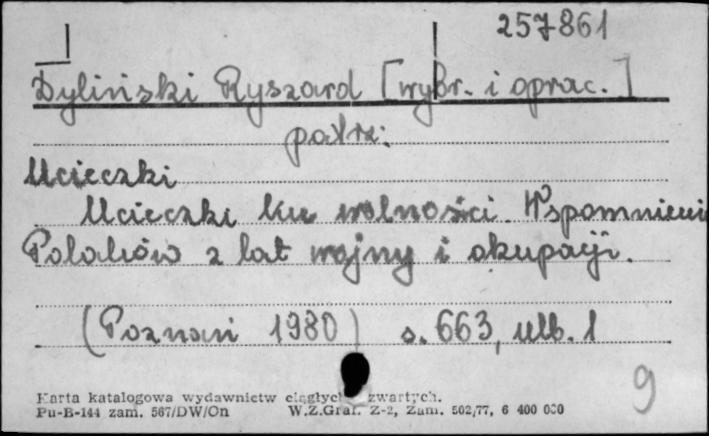 257861
Dyliński Ryszard [wybr. i oprac.]
patrz:
Ucieczki
Ucieczki ku wolności. Wspomnieni
Polaków z lat wojny i okupacji.
(Poznań 1980) s. 663, nlb. 1
9
Karta katalogowa wydawnictw ciągłych zwartych.
Pu-B-144 zam. 567/DW/On W.Z.Graf. Z-2, Zam. 502/77, 6 400 000